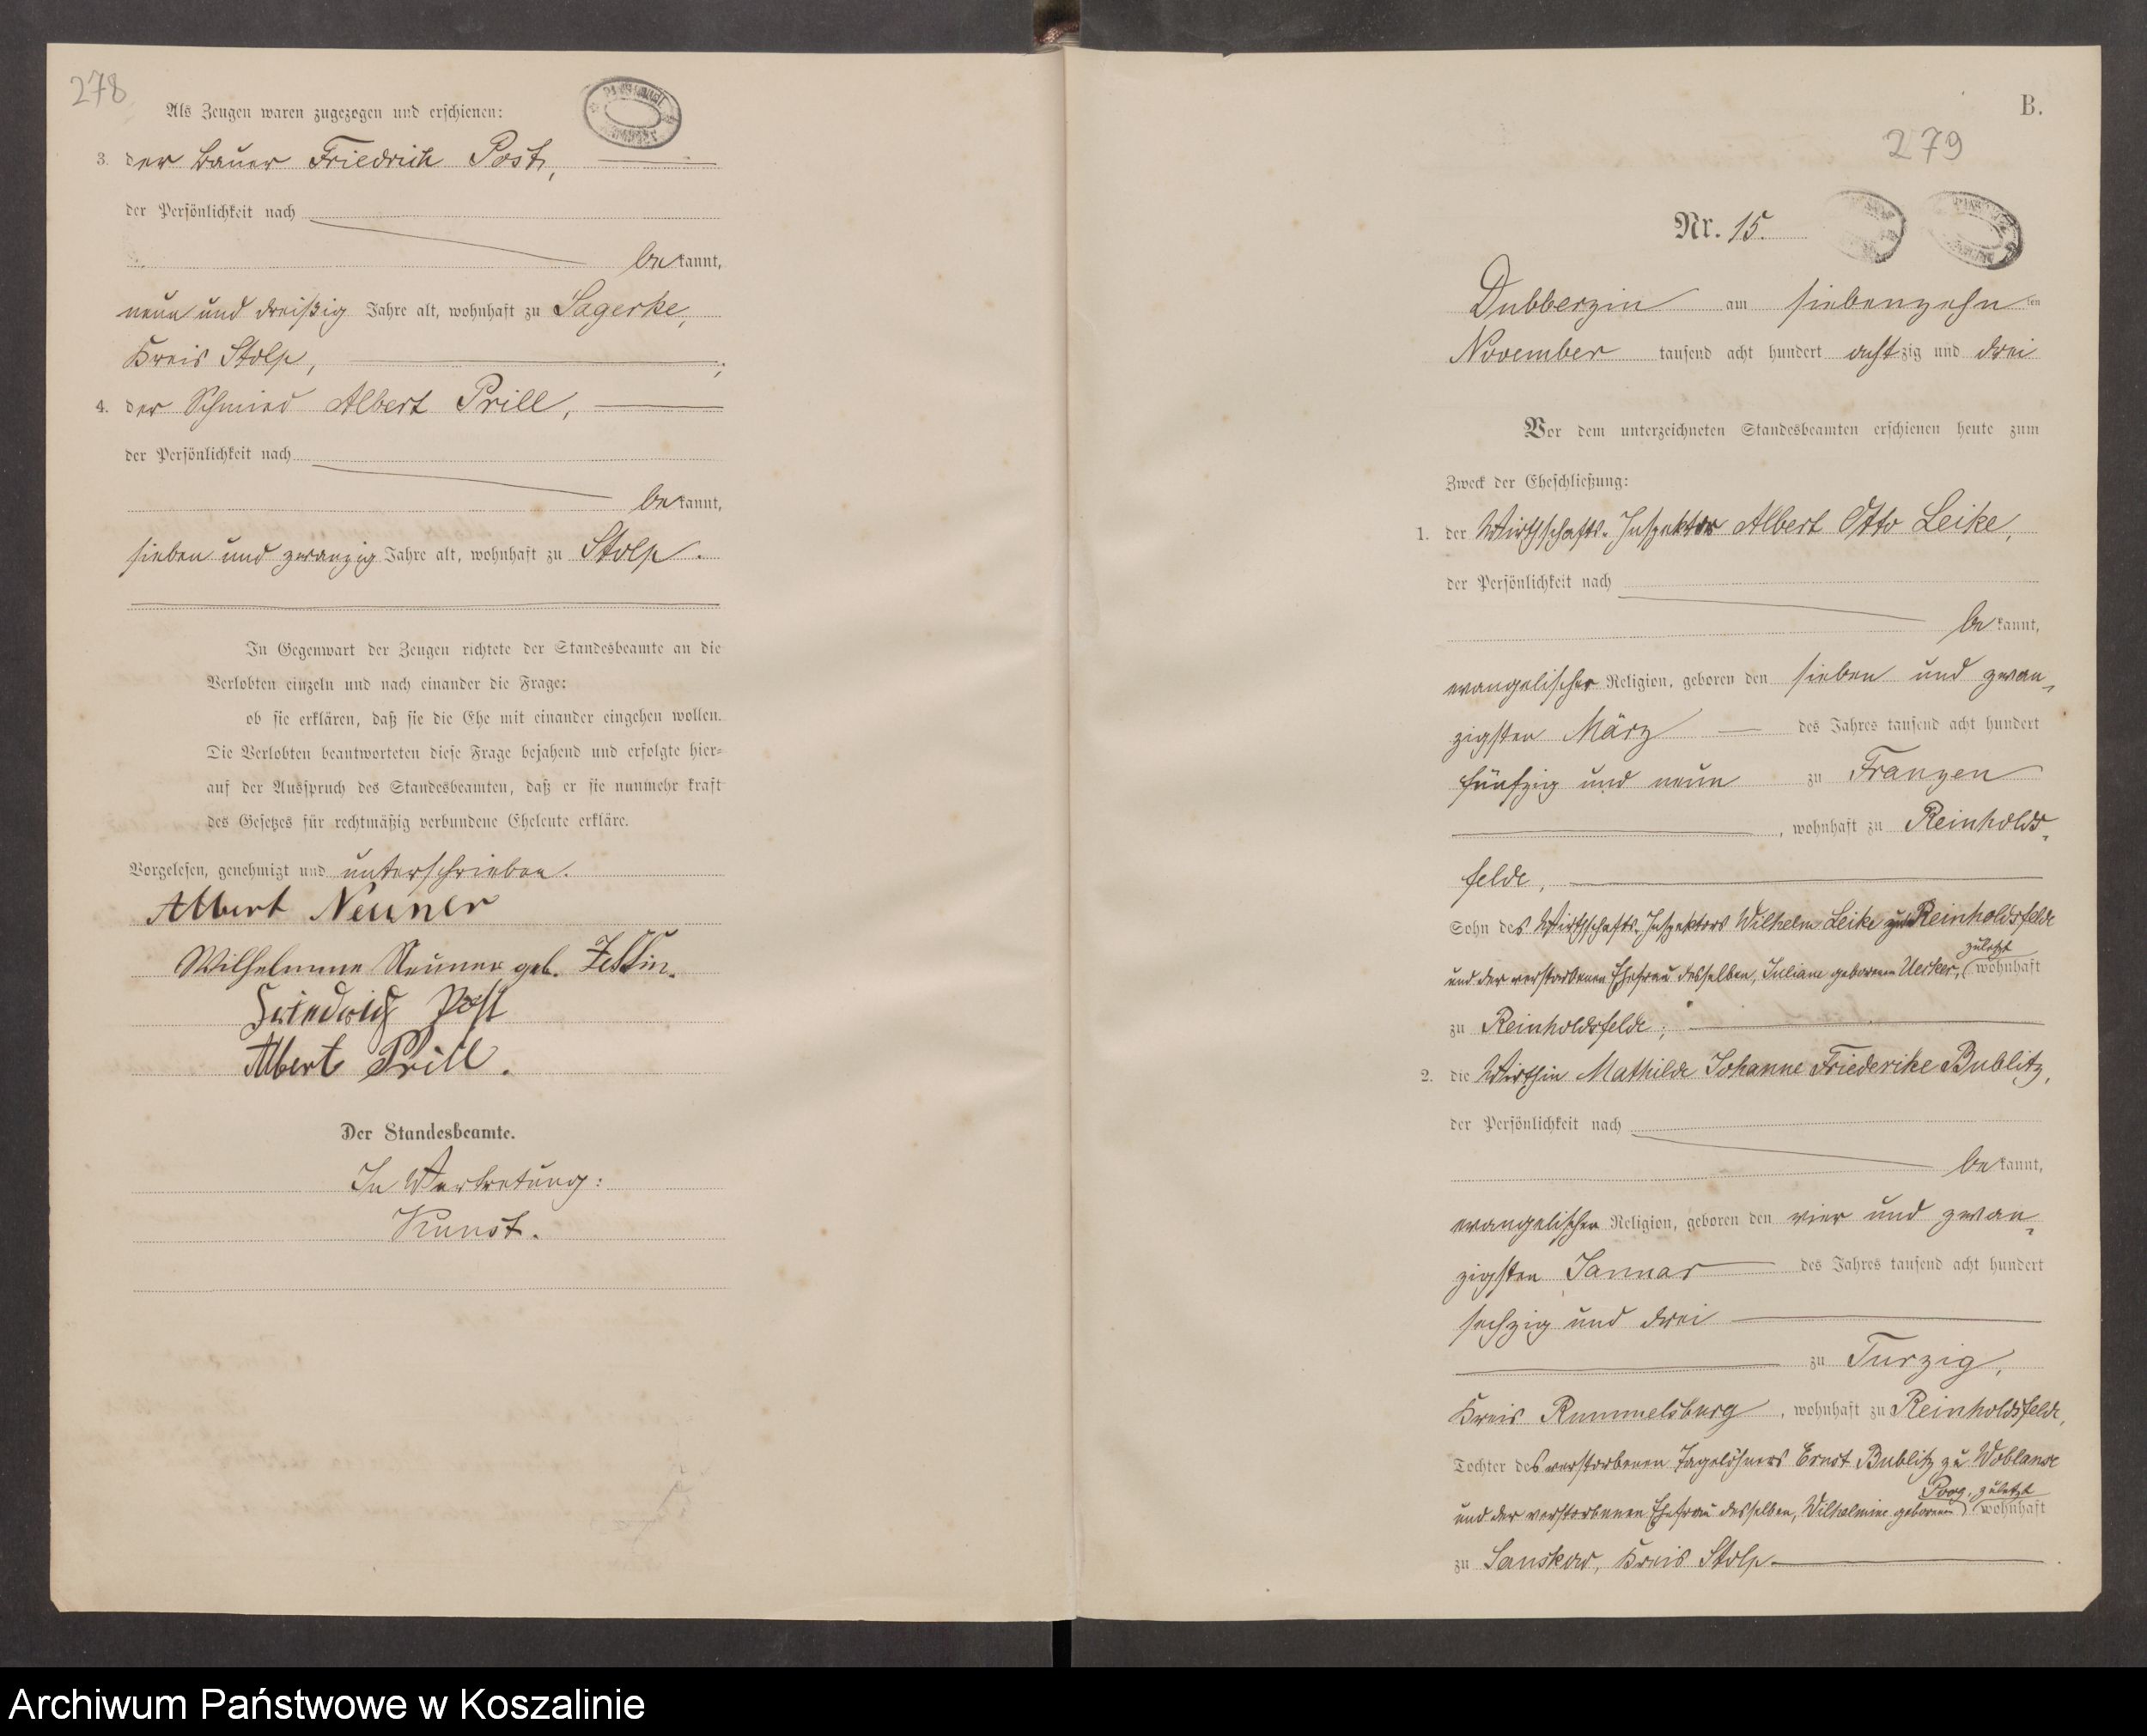 278
Als Zeugen waren zugezogen und erschienen:
3. der Bauer Friedrich Post,
der Persönlichkeit nach
bekannt,
neun und dreißig Jahre alt, wohnhaft zu Sagerke,
Kreis Stolp, ;
4. der Schmied Albert Prill,
der Persönlichkeit nach
bekannt,
sieben und zwanzig Jahre alt, wohnhaft zu Stolp.
In Gegenwart der Zeugen richtete der Standesbeamte an die
Verlobten einzeln und nach einander die Frage:
ob sie erklären, daß sie die Ehe mit einander eingehen wollen.
Die Verlobten beantworteten diese Frage bejahend und erfolgte hier=
auf der Ausspruch des Standesbeamten, daß er sie nunmehr kraft
des Gesetzes für rechtmäßig verbundene Eheleute erkläre.
Vorgelesen, genehmigt und unterschrieben.
Albert Neuner
Wilhelmine Neuner geb. Zessin.
Friedrich Post
Albert Prill.
Der Standesbeamte.
In Vertretung:
Kunst.
B.
279
Nr. 15.
Dubberzin am siebenzehn ten
November tausend acht hundert achtzig und drei
Vor dem unterzeichneten Standesbeamten erschienen heute zum
Zweck der Eheschließung:
1. der Wirthschafts-Inspektor Albert Otto Leike,
der Persönlichkeit nach
bekannt,
evangelischer Religion, geboren den sieben und zwan-
zigsten März des Jahres tausend acht hundert
fünfzig und neun zu Franzen
, wohnhaft zu Reinholds-
felde,
Sohn des Wirthschafts-Inspektors Wilhelm Leike zu Reinholdsfelde
zuletzt
und der verstorbenen Ehefrau desselben, Juliane geborenen Uecker, wohnhaft
zu Reinholdsfelde;
2. die Wirthin Mathilde Johanne Friederike Bublitz,
der Persönlichkeit nach
bekannt,
evangelischer Religion, geboren den vier und zwan-
zigsten Januar des Jahres tausend acht hundert
sechzig und drei
zu Turzig,
Kreis Rummelsburg, wohnhaft zu Reinholdsfelde,
Tochter des verstorbenen Tagelöhners Ernst Bublitz zu Woblanse
zuletzt
und der verstorbenen Ehefrau desselben, Wilhelmine geborenen wohnhaft
zu Sanskow, Kreis Stolp
Archiwum Państwowe w Koszalinie